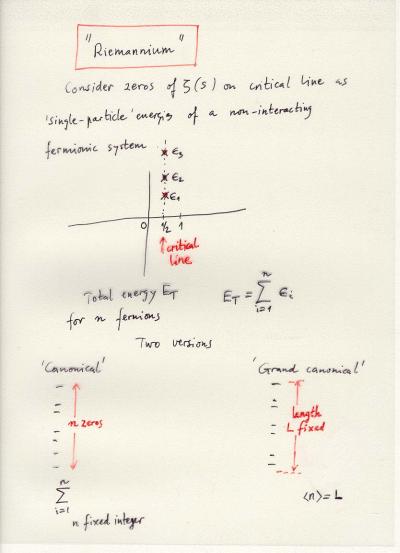 "Riemannium"
Consider zeros of ζ(s) on critical line as
'single-particle' energies of a non-interacting
fermionic system
ϵ3
ϵ2
ϵ1
0 1/2 1
critical
line
Total energy E_T
for n fermions
E_T = ∑_{i=1}^{n} ϵ_i
Two versions
'Canonical'
n zeros
∑_{i=1}^{n}
n fixed integer
'Grand canonical'
length
L fixed
⟨n⟩ = L